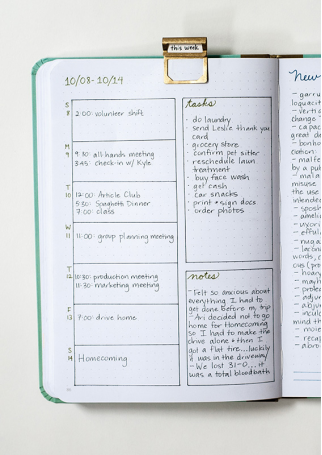 this week
10/08-10/14
S
8
2:00- volunteer shift
M
9
9:30- all hands meeting
3:45- check-in w/ Kyle
T
10
12:00- Article Club
5:30- Spaghetti Dinner
7:00- class
W
11
11:00- group planning meeting
T
12
10:30- production meeting
11:30- marketing meeting
F
13
7:00- drive home
S
14
Homecoming
tasks
- do laundry
- send Leslie thank you
card
- grocery store
- confirm pet sitter
- reschedule laun
treatment
- buy face wash
- get cash
- car snacks
- print + sign docs
- order photos
notes
- Felt so anxious about
everything I had to
get done before my trip
- Ari decided not to go
home for Homecoming
so I had to make the
drive alone + then I
got a flat tire...luckily
it was in the driveway
- We lost 31-0...it
was a total bloodbath
New
- garru
loquacit
- verti
change
- capac
great de
- bonho
- malfe
by a pub
- mala
misuse
the use
intended
- spost
- ameli
- uxori
- efful
- nuga
- laconi
words,
- hoary
- mayh
- prole
- adjur
- abjur
- incul
mind th
- more
- recap
- abro